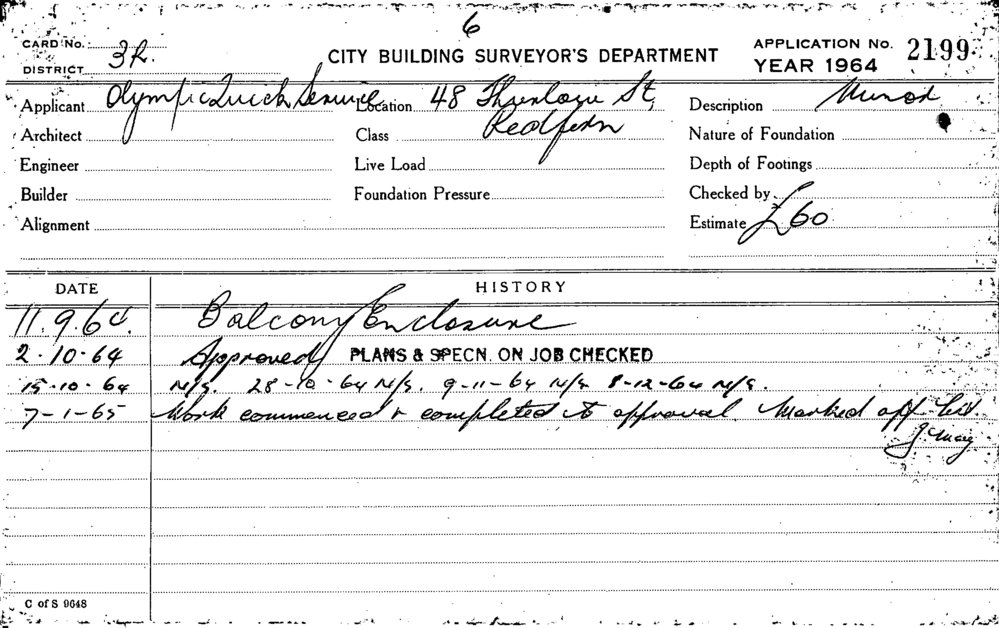 6
CARD No. CITY BUILDING SURVEYOR'S DEPARTMENT APPLICATION No. 2199
DISTRICT 3R. YEAR 1964
Applicant Olympic Quick Service Location 48 Thurlow St, Description Minor
Architect Class Redfern Nature of Foundation
Engineer Live Load Depth of Footings
Builder Foundation Pressure Checked by
Alignment Estimate £60
DATE HISTORY
11.9.64. Balcony Enclosure
2-10-64 Approved PLANS & SPECN. ON JOB CHECKED
15-10-64 N/S. 28-10-64 N/S. 9-11-64 N/S 8-12-64 N/S.
7-1-65 Work commenced & completed to approval. Marked off
C of S 9648